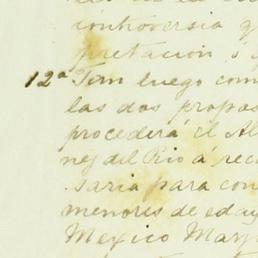 controversia q
pretacion ó
12ª Tan luego com
las dos propos
procederá el Al
nes del Rio á rec
saria para con
menores de eday
Mexico Mary